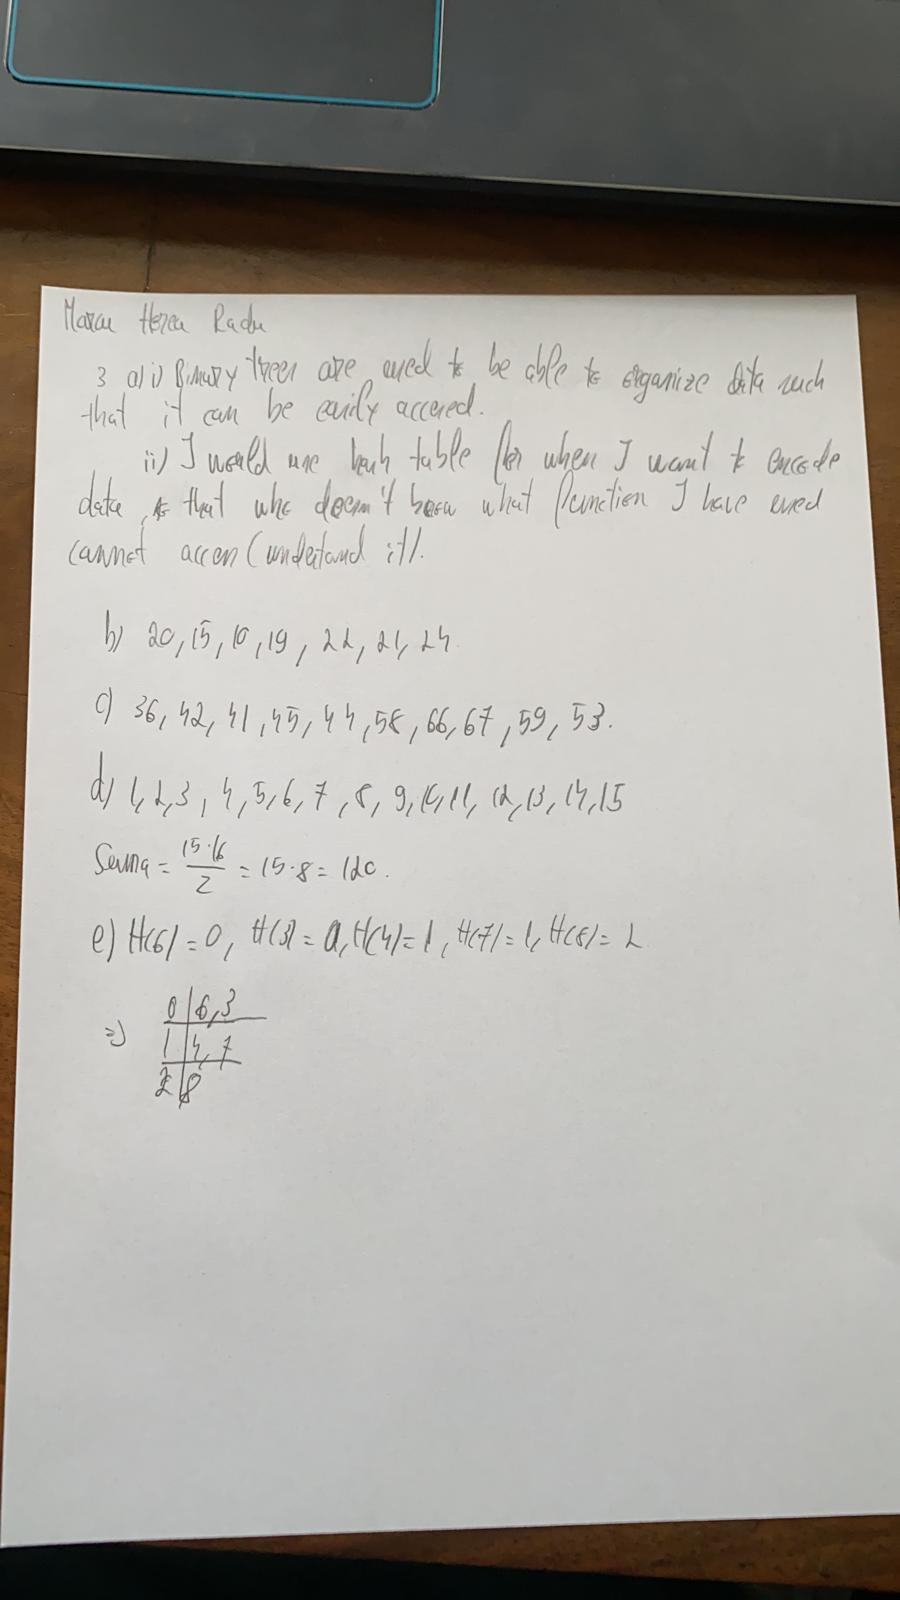 Radu
3 a) i) Binary trees are used to be able to organize data such
that it can be easily accesed.
ii) I would use hash table for when I want to encode
data, that who doesn't know what function I have used
cannot acces (understand it).
b) 20, 15, 10, 19, 22, 21, 24
c) 36, 42, 41, 45, 44, 58, 66, 67, 59, 53.
d) 1, 2, 3, 4, 5, 6, 7, 8, 9, 10, 11, 12, 13, 14, 15
Suma = 15·16/2 = 15·8 = 120.
e) H(6) = 0, H(3) = 0, H(4) = 1, H(7) = 1, H(8) = 2
=) 0 | 6, 3
1 | 4, 7
2 | 8